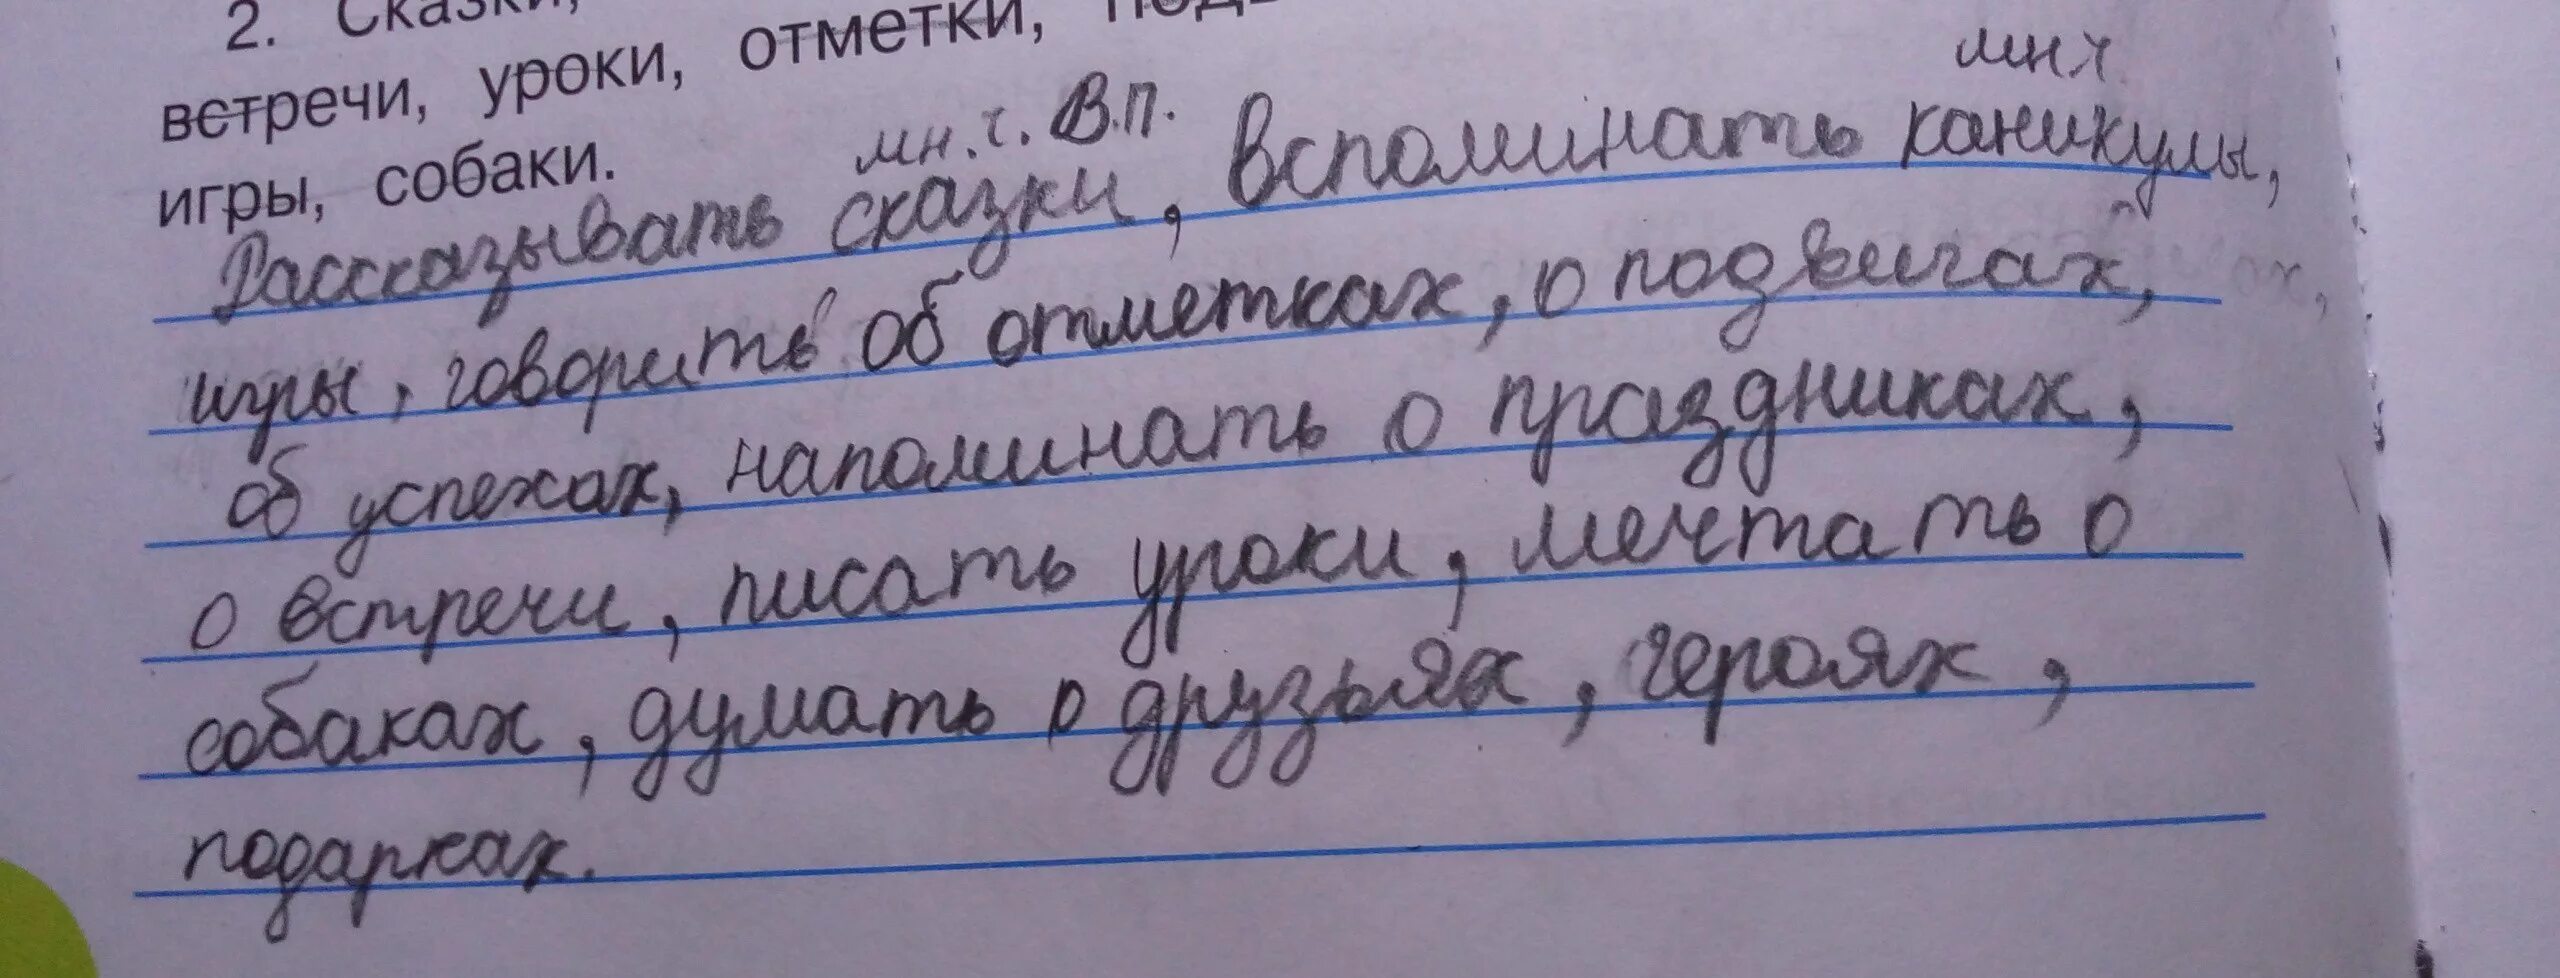 2. Сказки,
встречи, уроки, отметки,
игры, собаки.
мн.ч. В.п.
мн ч
Рассказывать сказки, вспоминать каникулы,
игры, говорить об отметках, о подвигах,
об успехах, напоминать о праздниках,
о встречи, писать уроки, мечтать о
собаках, думать о друзьях, героях,
подарках.